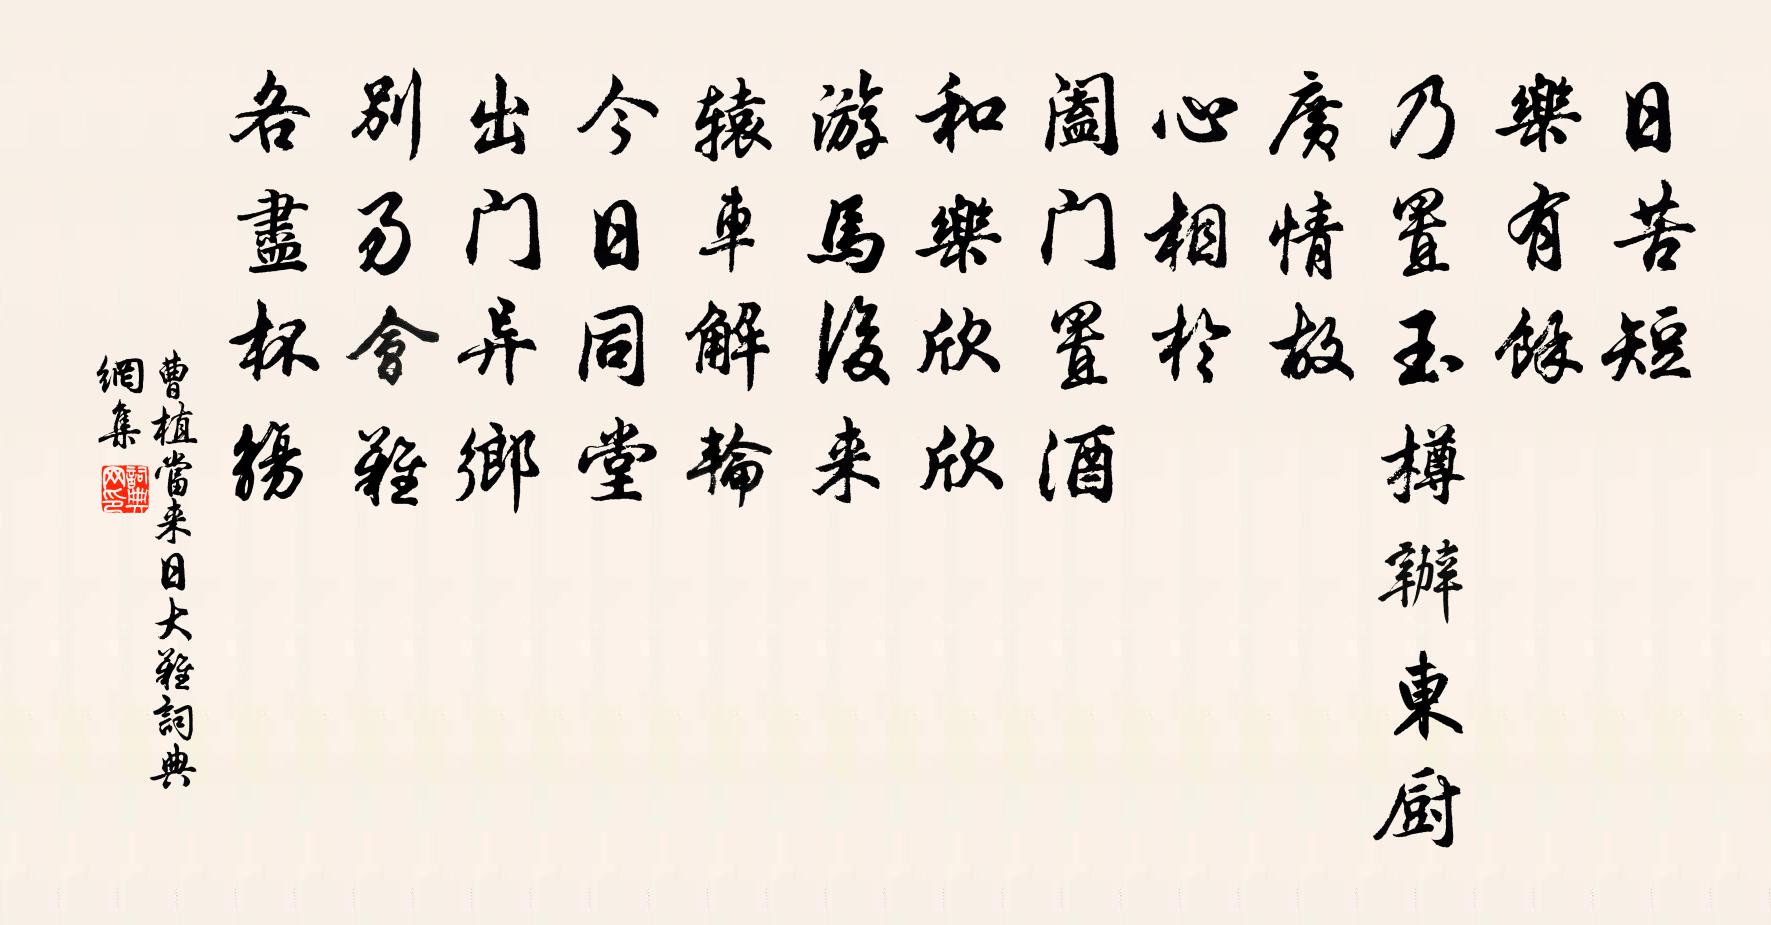 日苦短
樂有餘
乃置玉樽辦東厨
廣情故
心相於
闔门置酒
和樂欣欣
游馬後来
辕車解輪
今日同堂
出门异鄉
别易會難
各盡杯觴
曹植當来日大難詞典
網集
詞典
网印